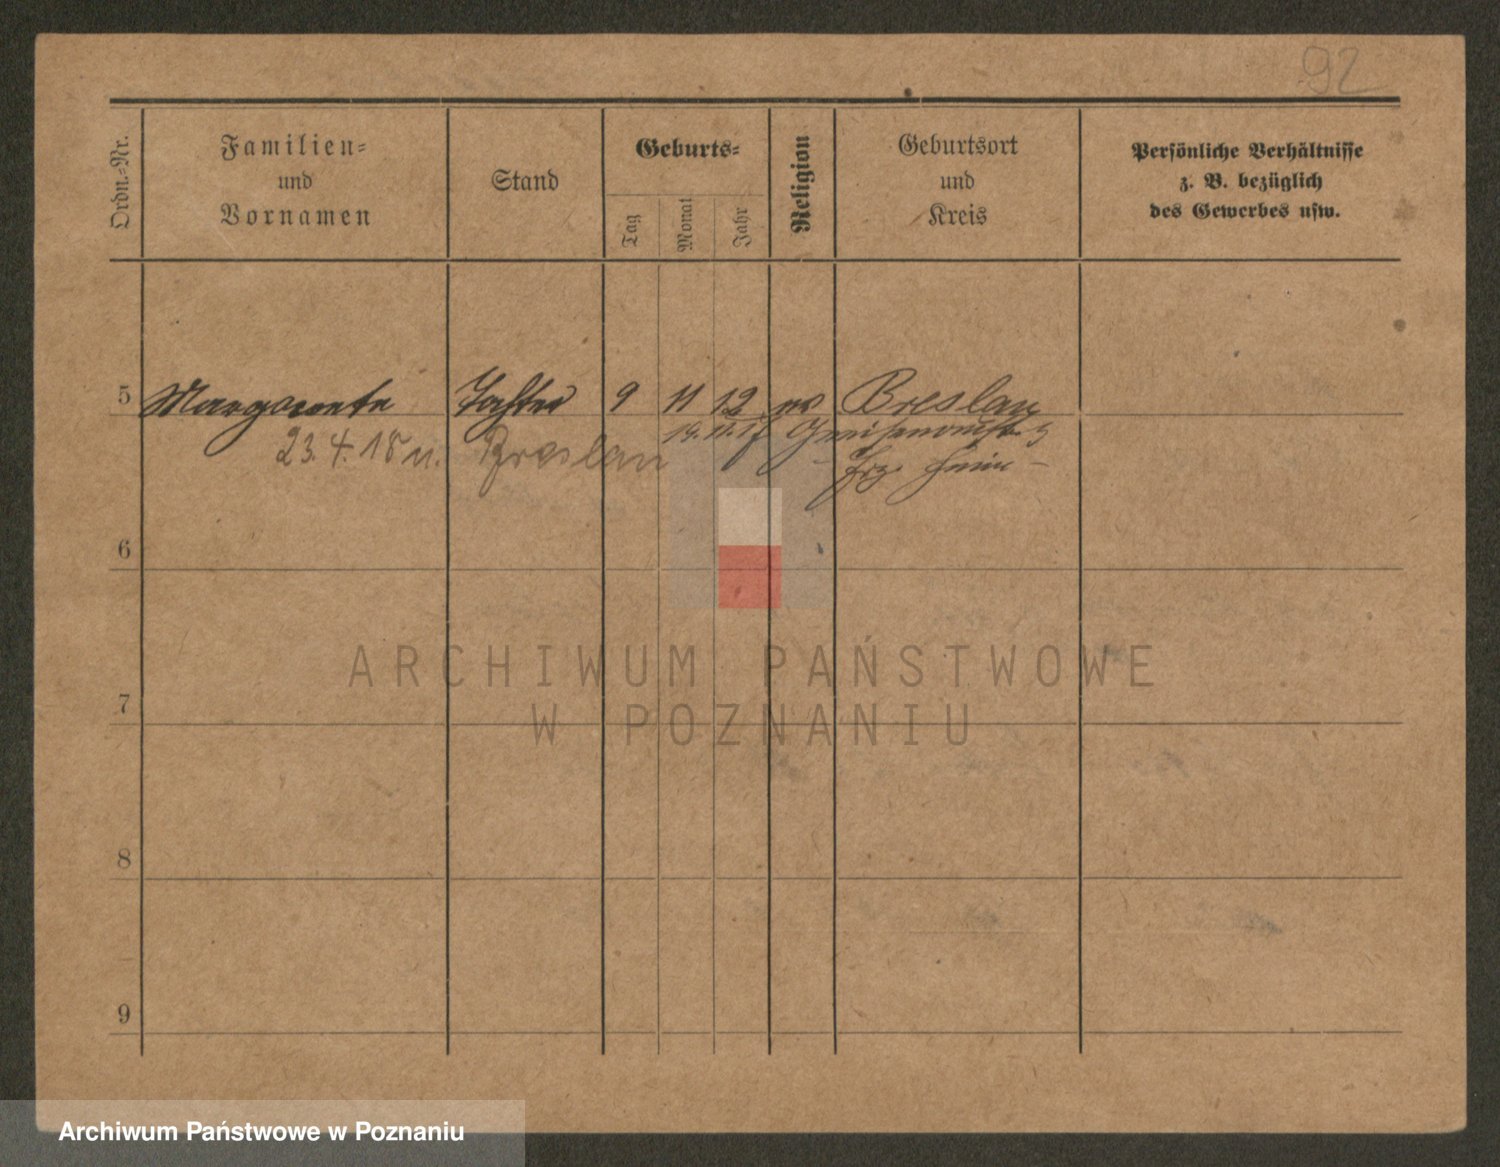 92
Ordn.-Nr.
Familien-
und
Vornamen
Stand
Geburts-
Tag
Monat
Jahr
Religion
Geburtsort
und
Kreis
Persönliche Verhältnisse
z. B. bezüglich
des Gewerbes usw.
5 Margarete Tochter 9 11 12 ev Breslau
19.11.17 Gneisenaustr. 5
23.4.18 n. Breslau
6
7
8
9
ARCHIWUM PAŃSTWOWE
W POZNANIU
Archiwum Państwowe w Poznaniu